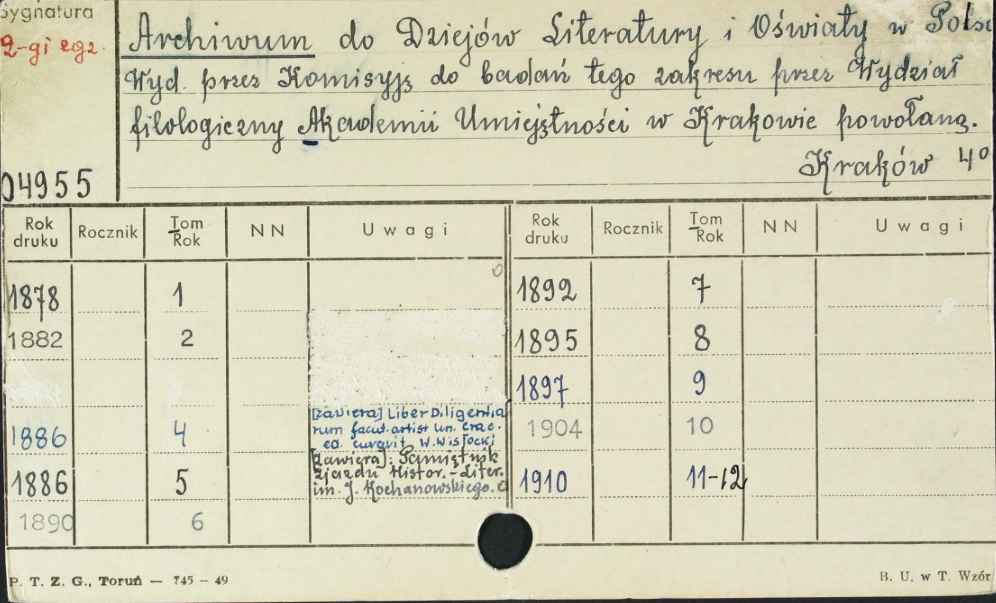 Sygnatura
2-gi egz.
04955
Archiwum do Dziejów Literatury i Oświaty w Polsc
Wyd. przez Komisyję do badań tego zakresu przez Wydział
filologiczny Akademii Umiejętności w Krakowie powołaną.
Kraków 4°
Rok druku Rocznik Tom Rok NN Uwagi Rok druku Rocznik Tom Rok NN Uwagi
1878 1
1882 2
1886 4 [zawiera] Liber Diligentia
rum facult. artist. un. crac.
ed. curavit W. Wisłocki
1886 5 [zawiera]: Pamiętnik
zjazdu Histor.-Liter.
im. J. Kochanowskiego.
1890 6
1892 7
1895 8
1897 9
1904 10
1910 11-12
P. T. Z. G., Toruń — 745 – 49
B. U. w T. Wzór